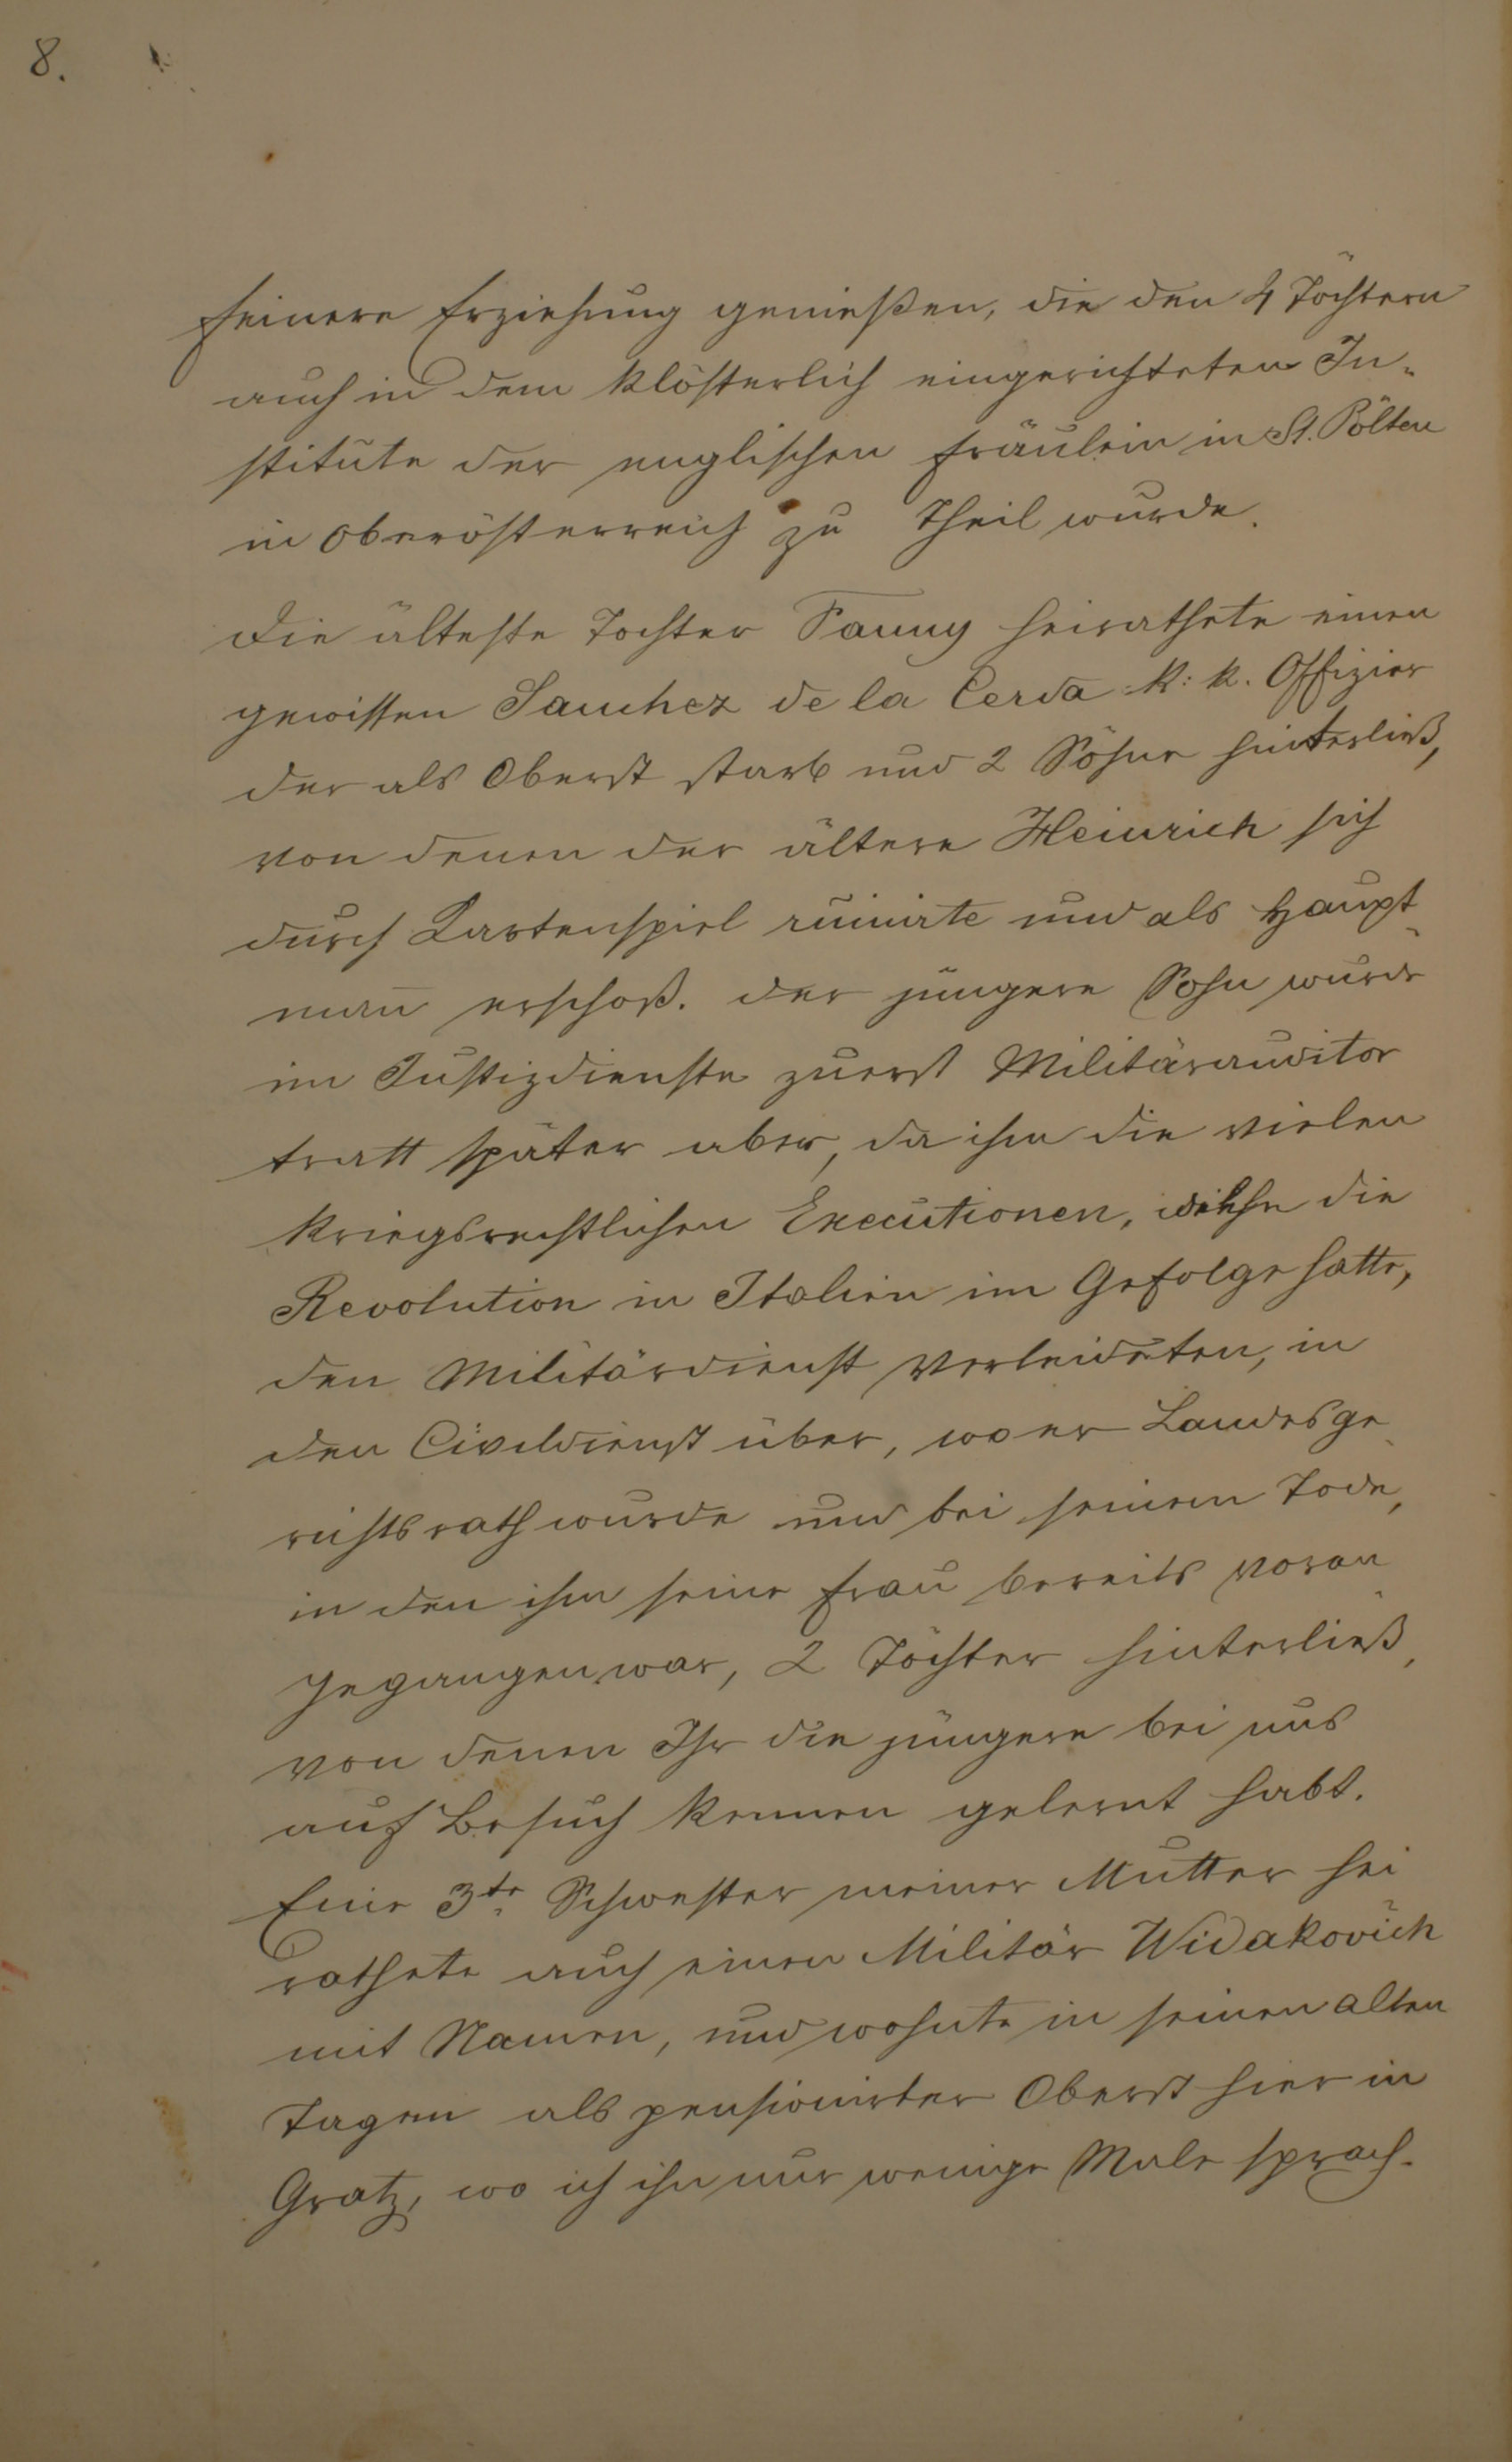 8.
feinere Erziehung genießen, die den 4 Töchtern
auch in dem klösterlich eingerichteten In-
stitute der englischen Fräulein in St. Pölten
in Oberösterreich zu Theil wurde.
Die älteste Tochter Fanny heirathete einen
gewissen Sanchez de la Cerda k: k. Offizier
der als Oberst starb und 2 Söhne hinterließ,
von denen der ältere Heinrich sich
durch Kartenspiel ruinirte und als Haupt-
man̄ erschoß. Der jüngere Sohn wurde
im Justizdienste zuerst Militärauditor
tratt später aber, da ihm die vielen
kriegsrechtlichen Executionen, welche die
Revolution in Italien im Gefolge hatte,
den Militärdienst verleideten, in
den Civildienst über, wo er Landesge-
richtsrath wurde und bei seinem Tode,
in den ihm seine Frau bereits voran-
gegangen war, 2 Töchter hinterließ,
von denen Ihr die jüngere bei uns
auf Besuch kennen gelernt habt.
Eine 3te Schwester meiner Mutter hei
rathete auch einen Militär Widakovich
mit Namen, und wohnte in seinen alten
Tagen als pensionirter Oberst hier in
Gratz, wo ich ihn nur wenige Male sprach.